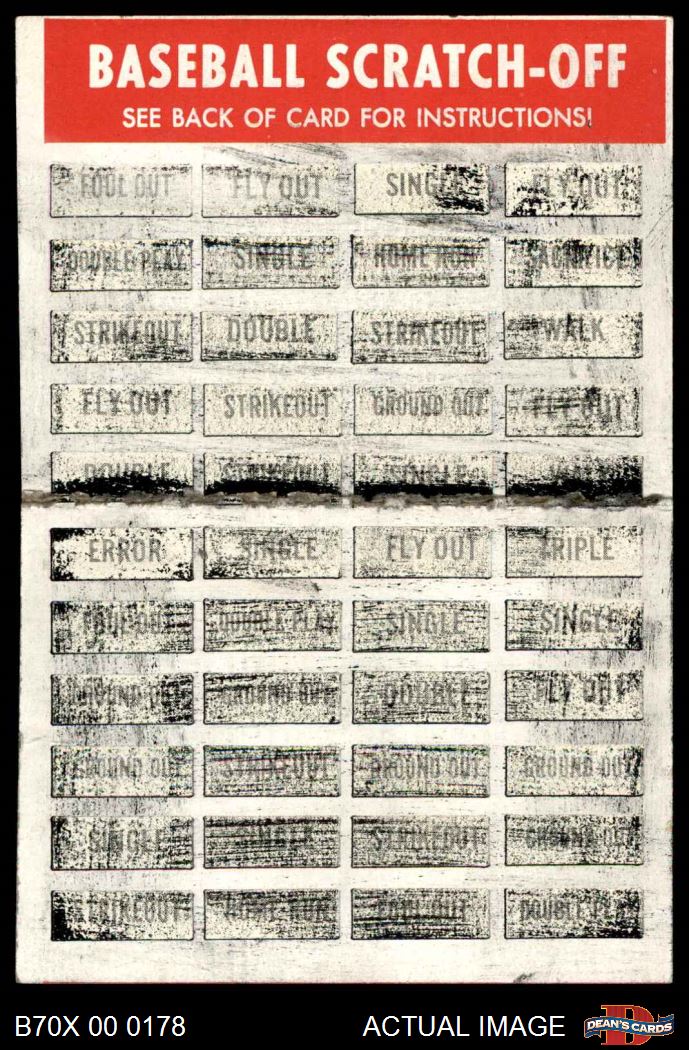 BASEBALL SCRATCH-OFF
SEE BACK OF CARD FOR INSTRUCTIONS!
FOUL OUT FLY OUT SINGLE FLY OUT
DOUBLE PLAY SINGLE HOME RUN SACRIFICE
STRIKEOUT DOUBLE STRIKEOUT WALK
FLY OUT STRIKEOUT GROUND OUT FLY OUT
DOUBLE STRIKEOUT SINGLE WALK
ERROR SINGLE FLY OUT TRIPLE
FOUL OUT DOUBLE PLAY SINGLE SINGLE
GROUND OUT GROUND OUT DOUBLE FLY OUT
GROUND OUT STRIKEOUT GROUND OUT GROUND OUT
SINGLE SINGLE STRIKEOUT GROUND OUT
STRIKEOUT HOME RUN FOUL OUT DOUBLE PLAY
B70X 00 0178 ACTUAL IMAGE D DEAN'S CARDS